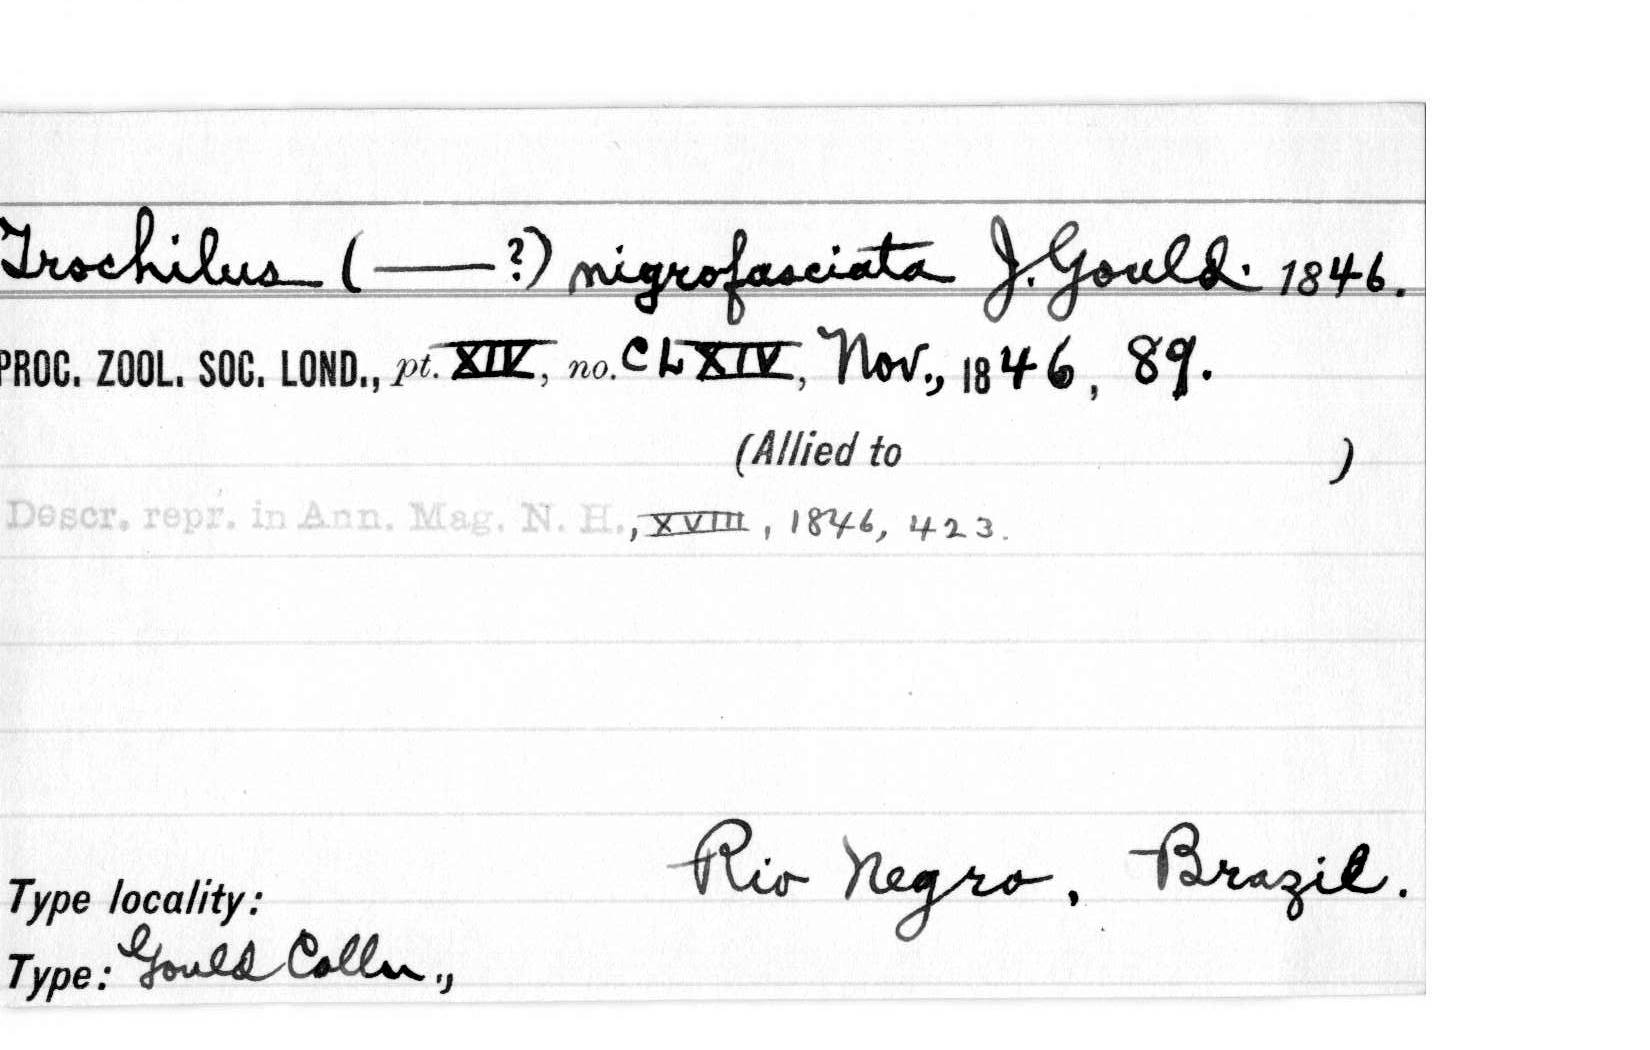 Trochilus (——?) nigrofasciata J. Gould. 1846.
PROC. ZOOL. SOC. LOND., pt. XIV, no. CLXIV, Nov., 1846, 89.
(Allied to )
Descr. repr. in Ann. Mag. N. H., XVIII, 1846, 423.
Type locality: Rio Negro, Brazil.
Type: Gould Colln.,